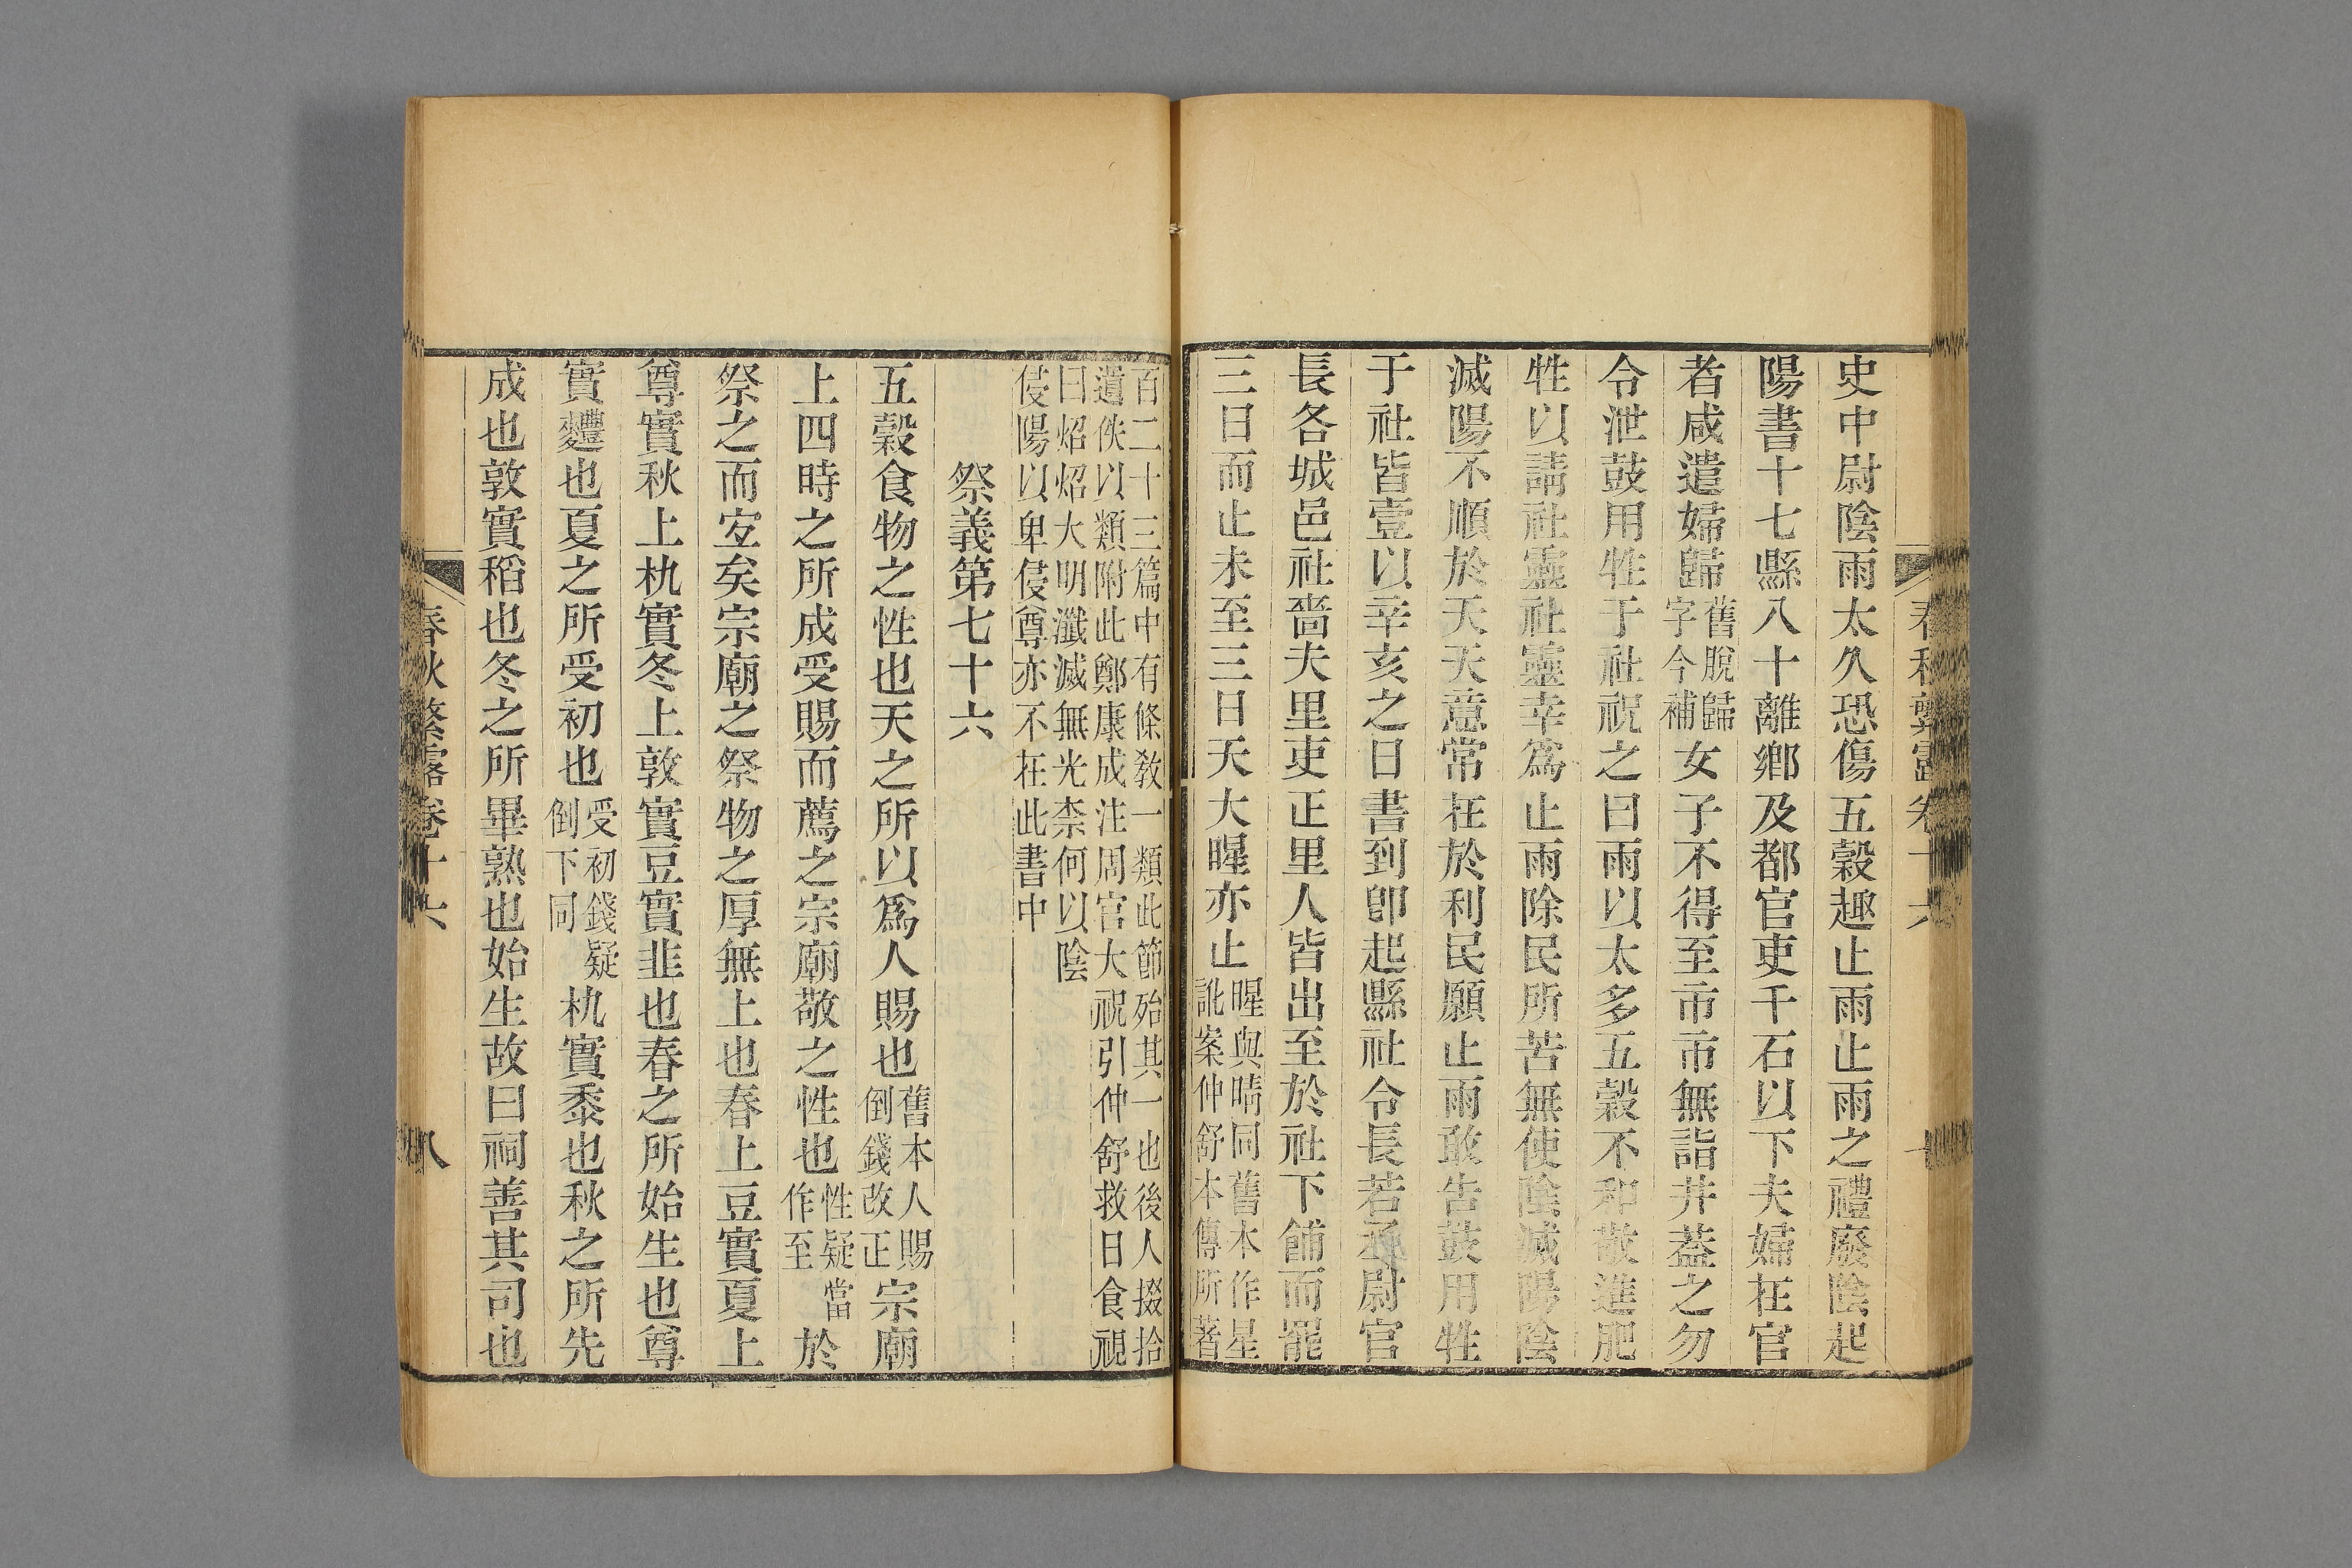 史中尉陰雨太久恐傷五穀趣止雨止雨之禮廢陰起
陽書十七縣八十離鄉及都官吏千石以下夫婦在官
者咸遣婦歸舊脫歸字今補女子不得至市市無詣井蓋之勿
令泄鼓用牲于社祝之曰雨以太多五穀不和敬進肥
牲以請社靈社靈幸爲止雨除民所苦無使陰滅陽陰
滅陽不順於天天意常在於利民願止雨敢告鼓用牲
于社皆壹以辛亥之日書到卽起縣社令長若丞尉官
長各城邑社嗇夫里吏正里人皆出至於社下餔而罷
三日而止未至三日天大暒亦止暒與晴同舊本作星訛案仲舒本傳所著
百二十三篇中有條教一類此節殆其一也後人掇拾
遺佚以類附此鄭康成注周官大祝引仲舒救日食祝
曰炤炤大明瀸滅無光柰何以陰
侵陽以卑侵尊亦不在此書中
祭義第七十六
五穀食物之性也天之所以爲人賜也舊本人賜倒錢改正宗廟
上四時之所成受賜而薦之宗廟敬之性也性疑當作至於
祭之而宜矣宗廟之祭物之厚無上也春上豆實夏上
尊實秋上朹實冬上敦實豆實韭也春之所始生也尊
實麷也夏之所受初也受初錢疑倒下同朹實黍也秋之所先
成也敦實稻也冬之所畢熟也始生故曰祠善其司也
春秋繁露卷十六
八